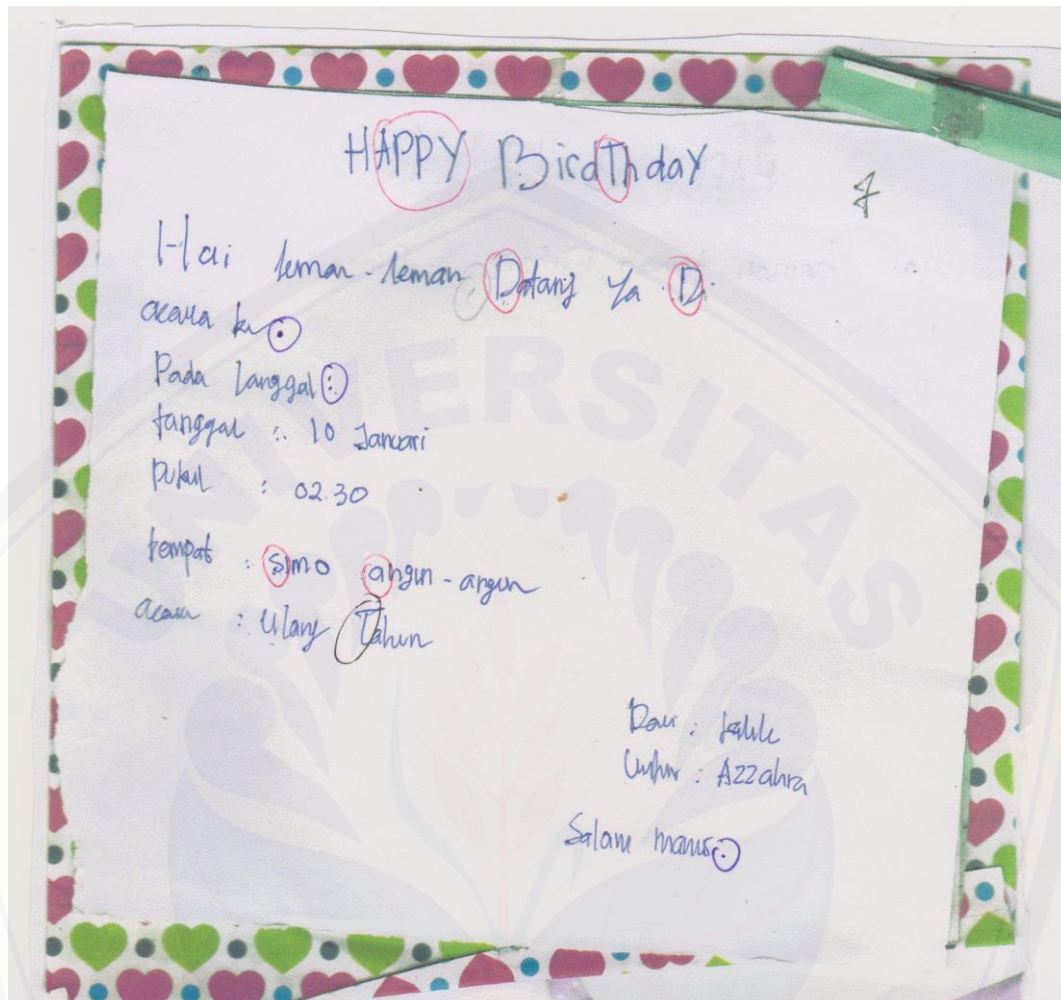 HAPPY BirdThday
7
Hai teman-teman Datang ya Di
acara ku.
Pada tanggal :
tanggal : 10 Januari
Pukul : 02.30
tempat : simo angin-angin
acara : Ulang Tahun
Dari :
Untuk : Azzahra
Salam manis.
UNIVERSITAS